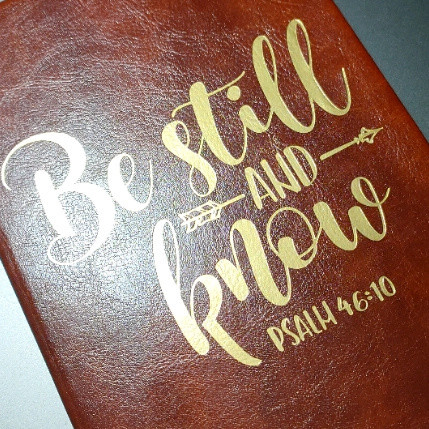 Be still
AND
know
PSALM 46:10